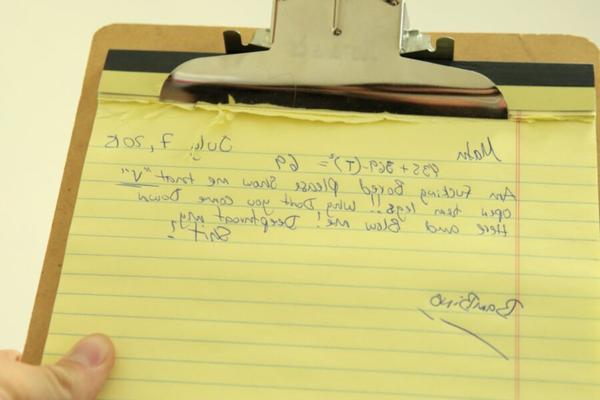 July, 7,
+ 369-(T)²= 69
Am Fucking Bored Please Show me that "V"
open them legs!! Why Dont you come Down
Here and Blow me! Deepthroat my
Shit!
Bambino